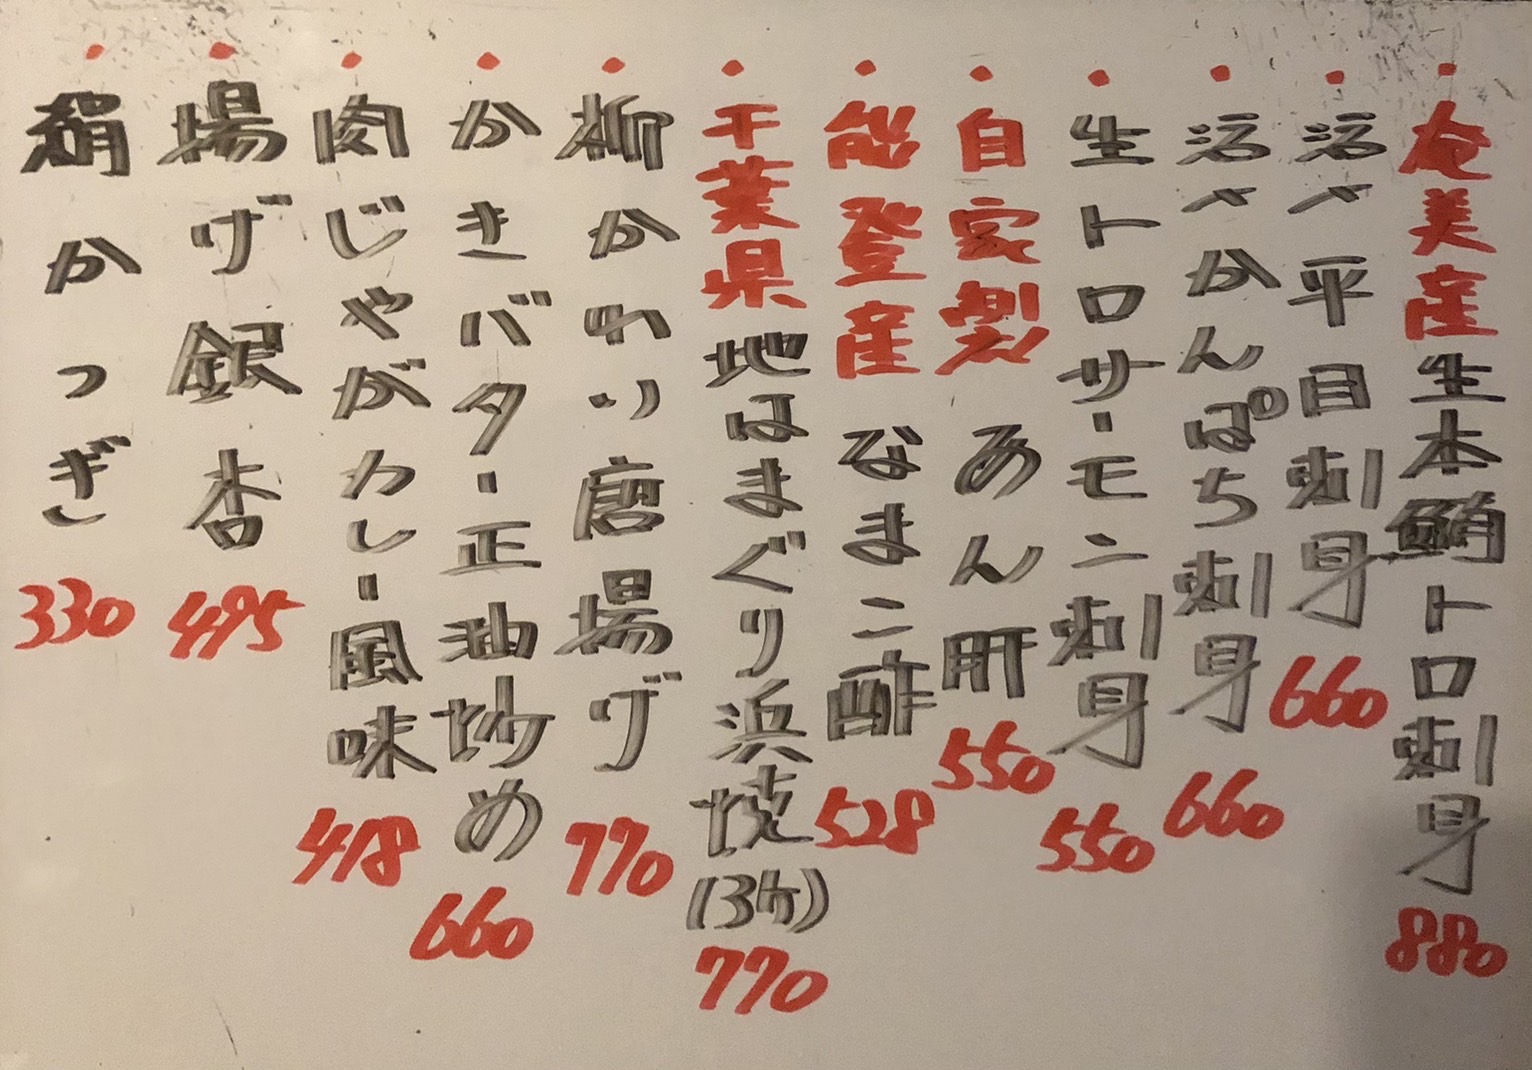 ・奄美産生本鮪トロ刺身 880
・活〆平目刺身 660
・活〆かんぱち刺身 660
・生トロサーモン刺身 550
・自家製 あん肝 550
・能登産 なまこ酢 528
・千葉県地はまぐり浜焼(3ケ) 770
・柳かれい唐揚げ 770
・かきバター正油炒め 660
・肉じゃがカレー風味 418
・揚げ銀杏 495
・絹かつぎ 330